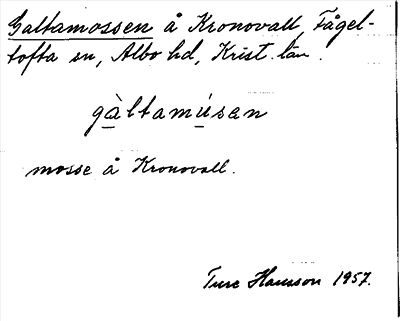 Galtamossen å Kronovall, Fågel-
tofta sn, Albo hd, Krist. län.
gàltamúsan
mosse å Kronovall.
Ture Hansson 1957.